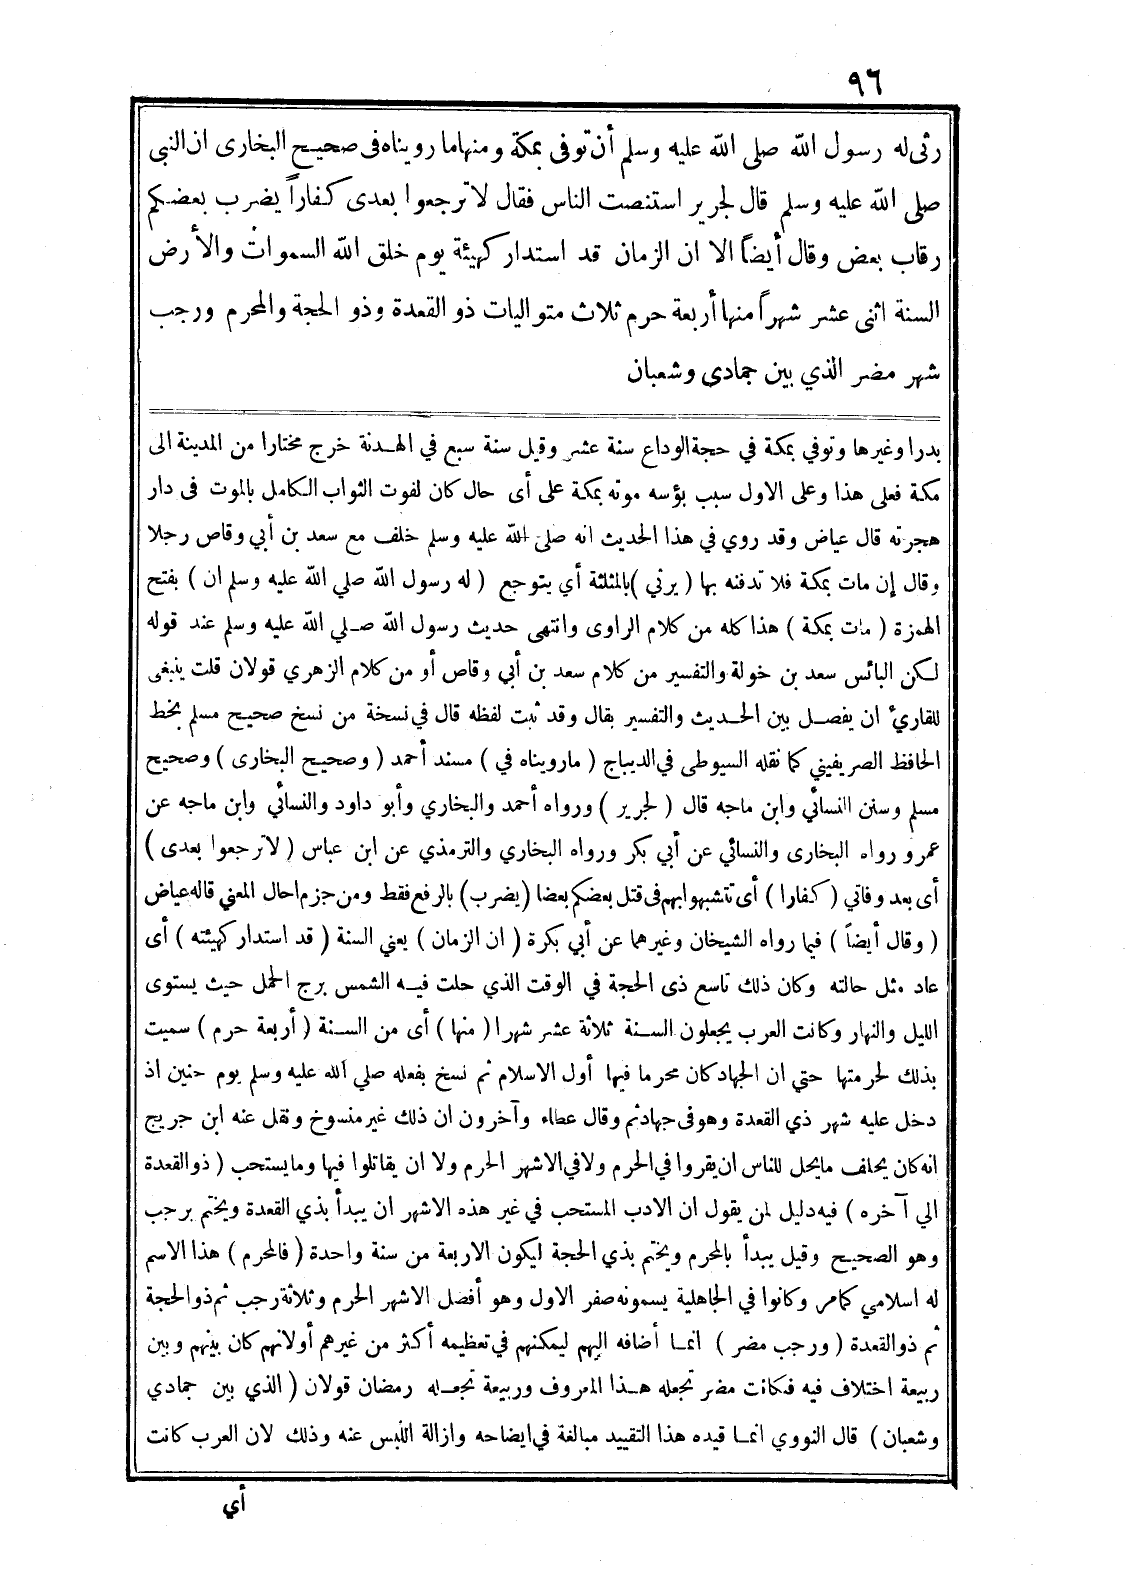 ٩٦
رثى له رسول الله صلى الله عليه وسلم أن توفى بمكة ومنها ما رويناه فى صحيح البخارى ان النبي
صلى الله عليه وسلم قال لجرير استنصت الناس فقال لا ترجعوا بعدى كفاراً يضرب بعضكم
رقاب بعض وقال أيضاً الا ان الزمان قد استدار كهيئة يوم خلق الله السموات والأرض
السنة اثنى عشر شهراً منها أربعة حرم ثلاث متواليات ذو القعدة وذو الحجة والمحرم ورجب
شهر مضر الذي بين جمادى وشعبان
بدرا وغيرها وتوفي بمكة في حجة الوداع سنة عشر وقيل سنة سبع في الهدنة خرج مختارا من المدينة الى
مكة فعلى هذا وعلى الاول سبب بؤسه موته بمكة على أى حال كان لفوت الثواب الكامل بالموت فى دار
هجرته قال عياض وقد روي في هذا الحديث انه صلى الله عليه وسلم خلف مع سعد بن أبي وقاص رجلا
وقال إن مات بمكة فلا تدفنه بها ( يرثي ) بالمثلثة أي يتوجع ( له رسول الله صلي الله عليه وسلم ان ) بفتح
الهمزة ( مات بمكة ) هذا كله من كلام الراوى وانتهى حديث رسول الله صلي الله عليه وسلم عند قوله
لكن البائس سعد بن خولة والتفسير من كلام سعد بن أبي وقاص أو من كلام الزهري قولان قلت ينبغى
للقاريء ان يفصل بين الحديث والتفسير بقال وقد ثبت لفظه قال في نسخة من نسخ صحيح مسلم بخط
الحافظ الصريفيني كما نقله السيوطى في الديباج ( ما رويناه في ) مسند أحمد ( وصحيح البخارى ) وصحيح
مسلم وسنن النسائي وابن ماجه قال ( لجرير ) ورواه أحمد والبخاري وأبو داود والنسائي وابن ماجه عن
عمرو رواه البخارى والنسائي عن أبي بكر ورواه البخاري والترمذي عن ابن عباس ( لا ترجعوا بعدى )
أى بعد وفاتي ( كفارا ) أى تتشبهوا بهم فى قتل بعضكم بعضا (يضرب) بالرفع فقط ومن جزم احال المعني قاله عياض
( وقال أيضاً ) فيما رواه الشيخان وغيرهما عن أبي بكرة ( ان الزمان ) يعني السنة ( قد استدار كهيئته ) أى
عاد مثل حالته وكان ذلك تاسع ذى الحجة في الوقت الذي حلت فيه الشمس برج الحمل حيث يستوى
الليل والنهار وكانت العرب يجعلون السنة ثلاثة عشر شهرا ( منها ) أى من السنة ( أربعة حرم ) سميت
بذلك لحرمتها حتي ان الجهاد كان محرما فيها أول الاسلام ثم نسخ بفعله صلي الله عليه وسلم يوم حنين اذ
دخل عليه شهر ذي القعدة وهو فى جهادثم وقال عطاء وآخرون ان ذلك غير منسوخ ونقل عنه ابن جريج
انه كان يحلف ما يحل للناس ان يغزوا في الحرم ولا في الاشهر الحرم ولا ان يقاتلوا فيها وما يستحب ( ذو القعدة
الي آخره ) فيه دليل لمن يقول ان الادب المستحب في غير هذه الاشهر ان يبدأ بذي القعدة ويختم برجب
وهو الصحيح وقيل يبدأ بالمحرم ويختم بذي الحجة ليكون الاربعة من سنة واحدة ( فالمحرم ) هذا الاسم
له اسلامي كمامر وكانوا في الجاهلية يسمونه صفر الاول وهو أفضل الاشهر الحرم وثلاثة رجب ثم ذو الحجة
ثم ذو القعدة ( ورجب مضر ) انما أضافه اليهم ليمكنهم في تعظيمه أكثر من غيرهم أولانهم كان بينهم وبين
ربيعة اختلاف فيه فكانت مضر تجعله هذا المعروف وربيعة تجعله رمضان قولان ( الذي بين جمادي
وشعبان ) قال النووي انما قيده هذا التقييد مبالغة في ايضاحه وازالة اللبس عنه وذلك لان العرب كانت
أي